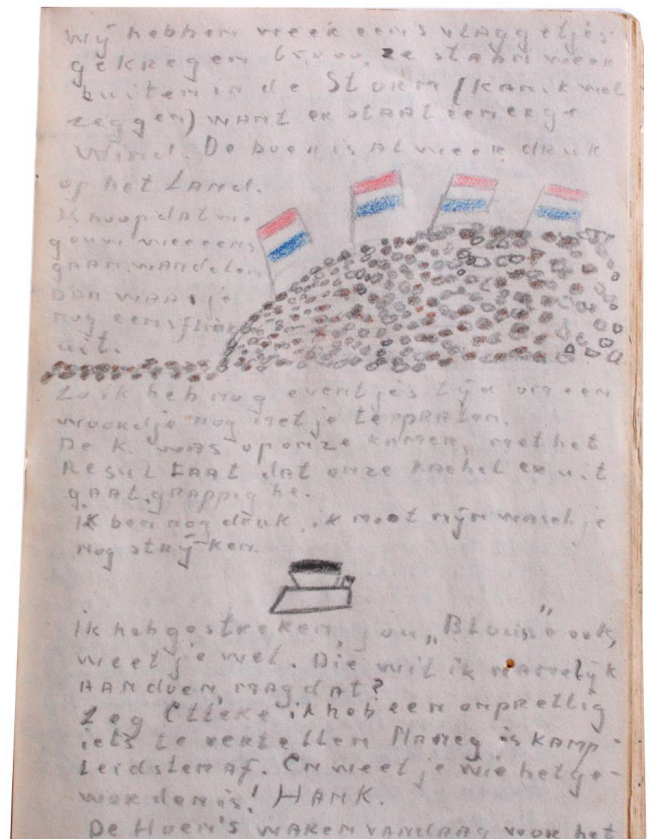 Wij hebben weer eens vlaggetjes
gekregen hoor, ze staan weer
buiten in de Storm (kan ik wel
zeggen) want er staat een erge
wind. De boer is al weer druk
op het Land.
Ik hoop dat we
gauw weer eens
gaan wandelen
Dan waai je
nog eens flink
uit.
Zo ik heb nog eventjes tijd om een
woordje nog met je te praten.
De K was op onze kamer, met het
Resultaat dat onze kachel er uit
gaat, grappig he.
Ik ben nog druk, ik moet mijn wasch je
nog strijken.
Ik heb gestreeken, jou „Blouse" ook,
weet je wel. Die wil ik namelijk
aandoen, mag dat?
Zeg Elleke ik heb een onprettig
iets te vertellen is kamp-
Leidster af. En weet je wie het ge-
worden is! HANK.
De Hoen's waren vandaag voor het